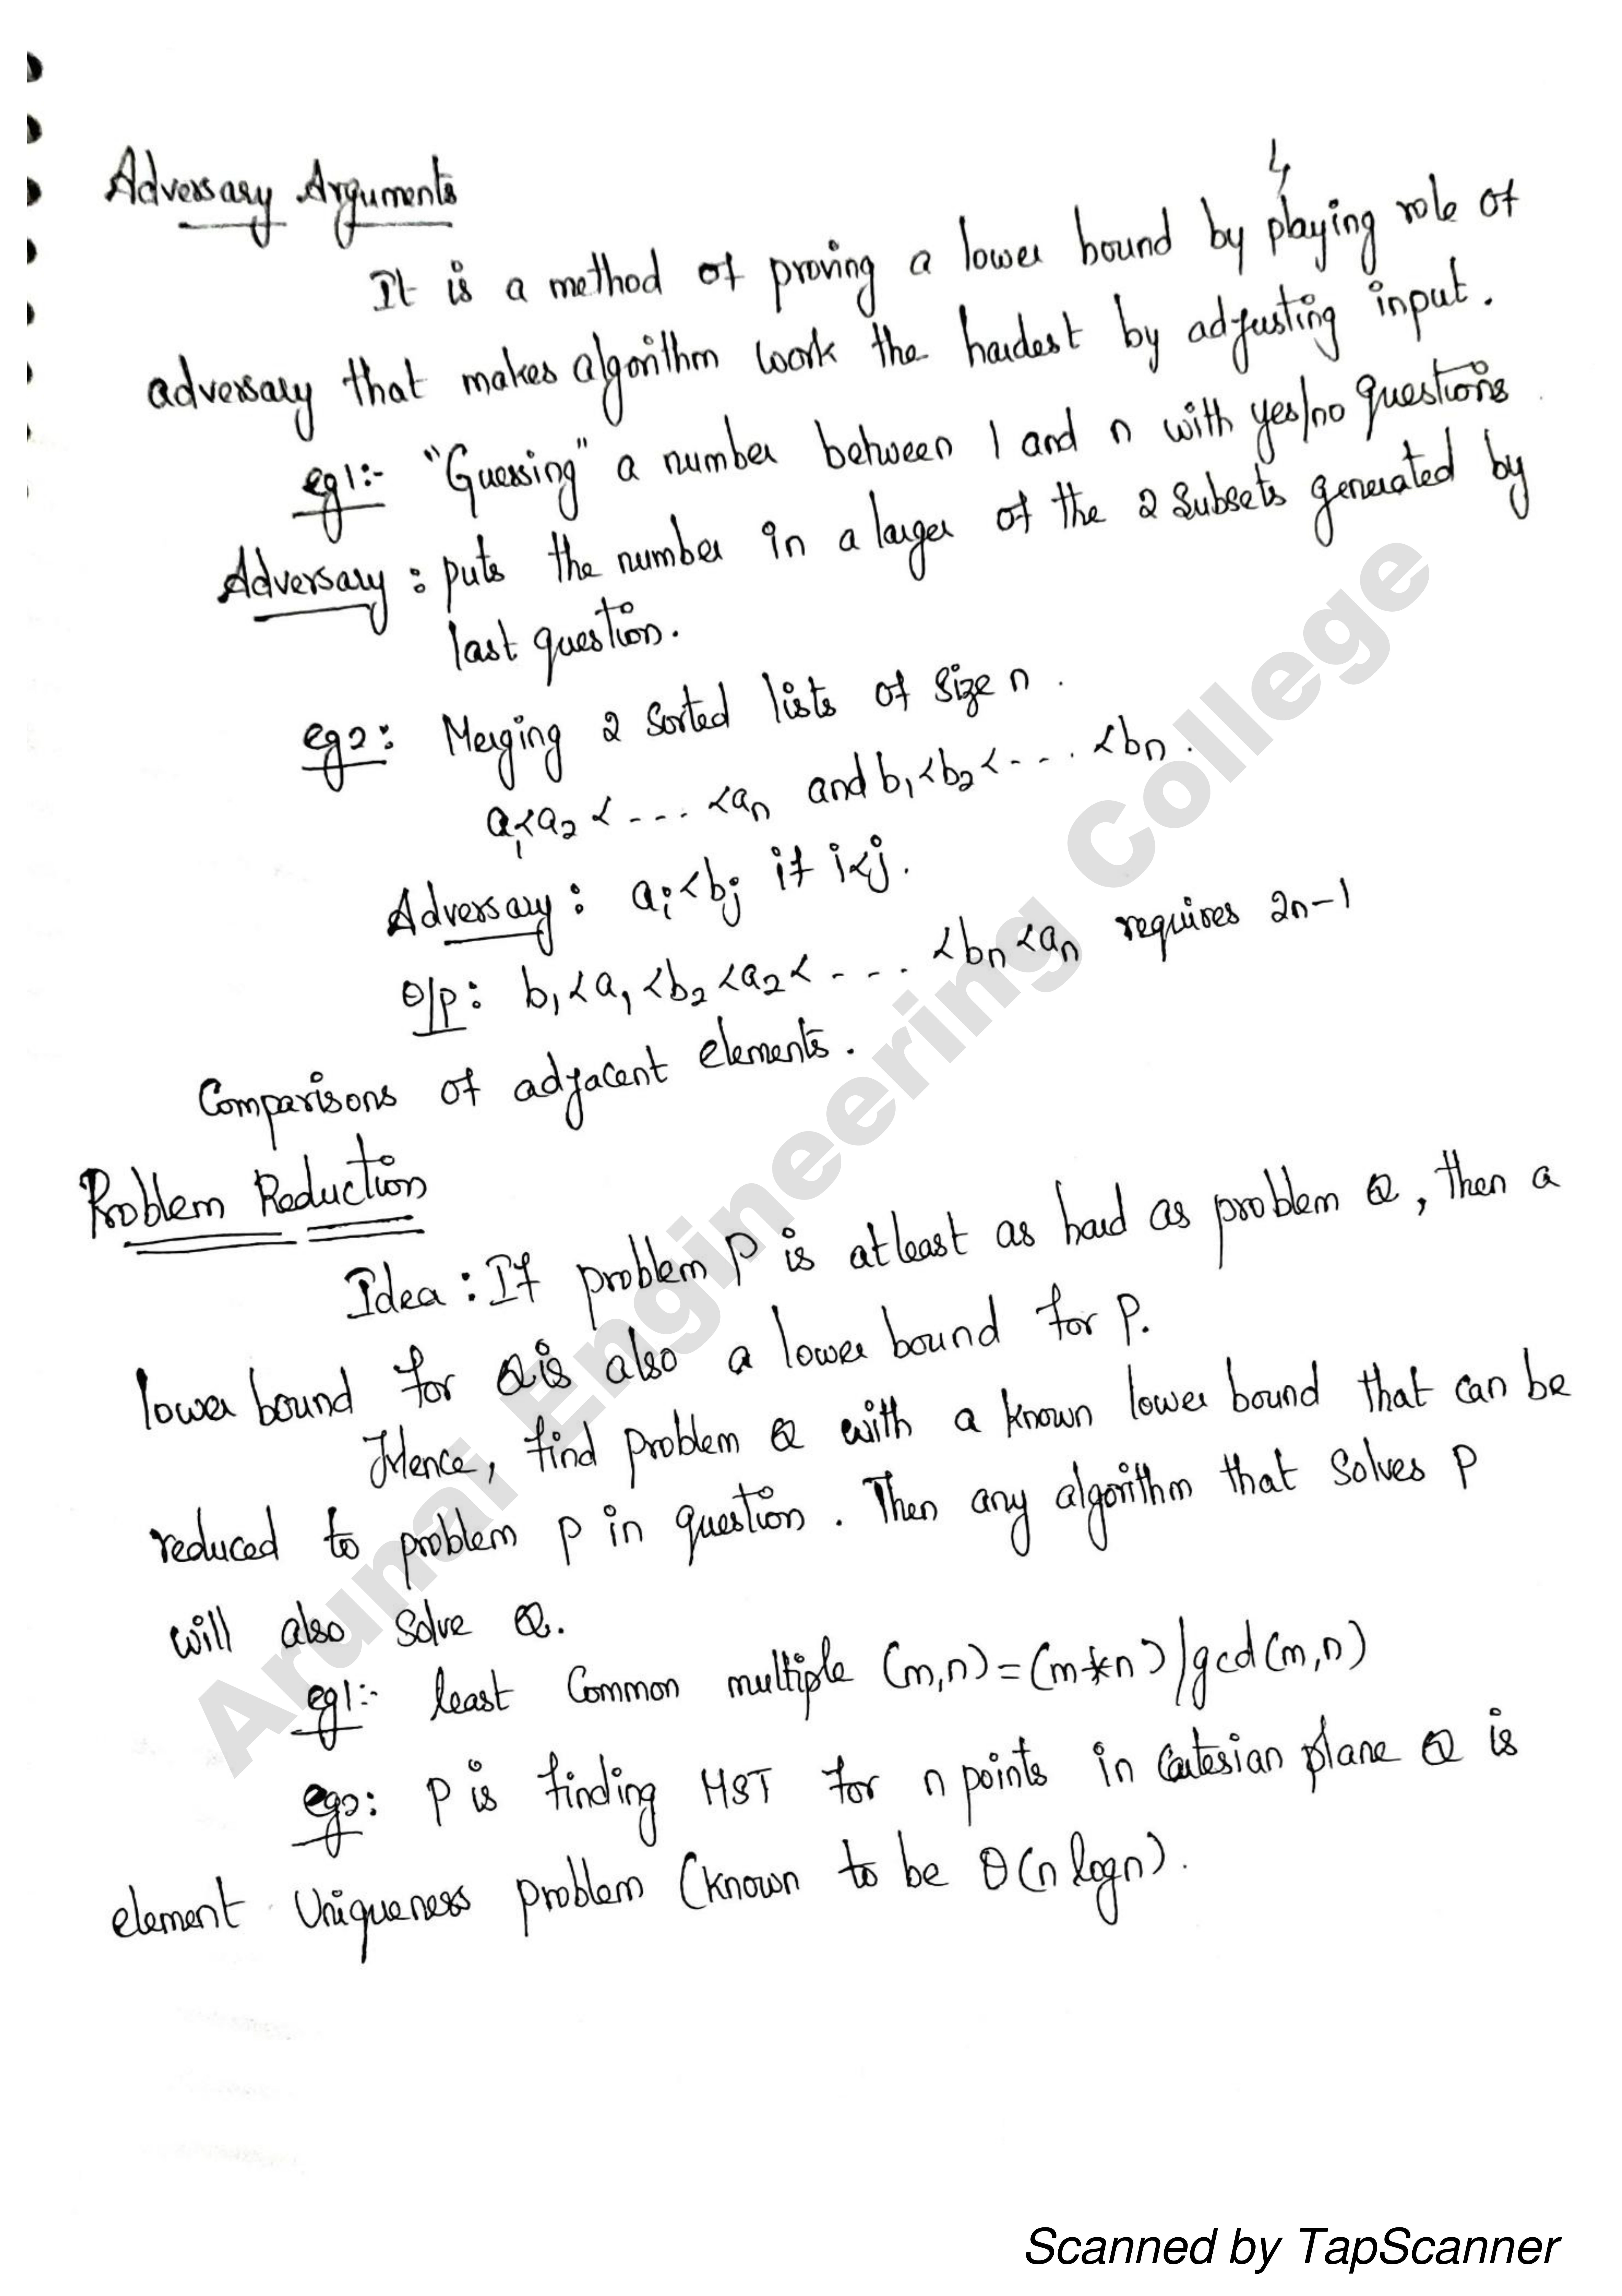 4
Adversary Arguments
It is a method of proving a lower bound by playing role of
adversary that makes algorithm work the hardest by adjusting input.
eg1:- "Guessing" a number between 1 and n with yes/no questions
Adversary : puts the number in a larger of the 2 subsets generated by
last question.
eg2: Merging 2 sorted lists of size n.
a₁<a₂ < .... <aₙ and b₁<b₂ < .... <bₙ.
Adversary : aᵢ<bⱼ if i<j.
O/p: b₁<a₁<b₂<a₂< .... <bₙ<aₙ requires 2n-1
Comparisons of adjacent elements.
Problem Reduction
Idea : If problem P is atleast as hard as problem Q, then a
lower bound for Q is also a lower bound for P.
Hence, find problem Q with a known lower bound that can be
reduced to problem P in question. Then any algorithm that solves P
will also solve Q.
eg1:- least Common multiple (m,n)=(m*n)/gcd(m,n)
eg2: P is finding MST for n points in Cartesian plane Q is
element Uniqueness problem (known to be θ(n logn).
Arunai Engineering College
Scanned by TapScanner